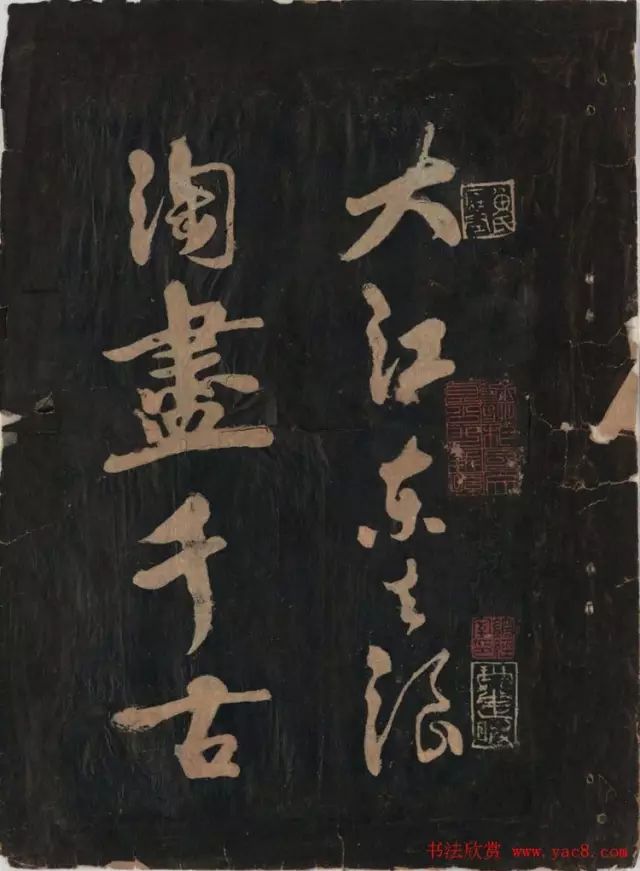 大江東去浪
淘盡千古
书法欣赏 www.yac8.com